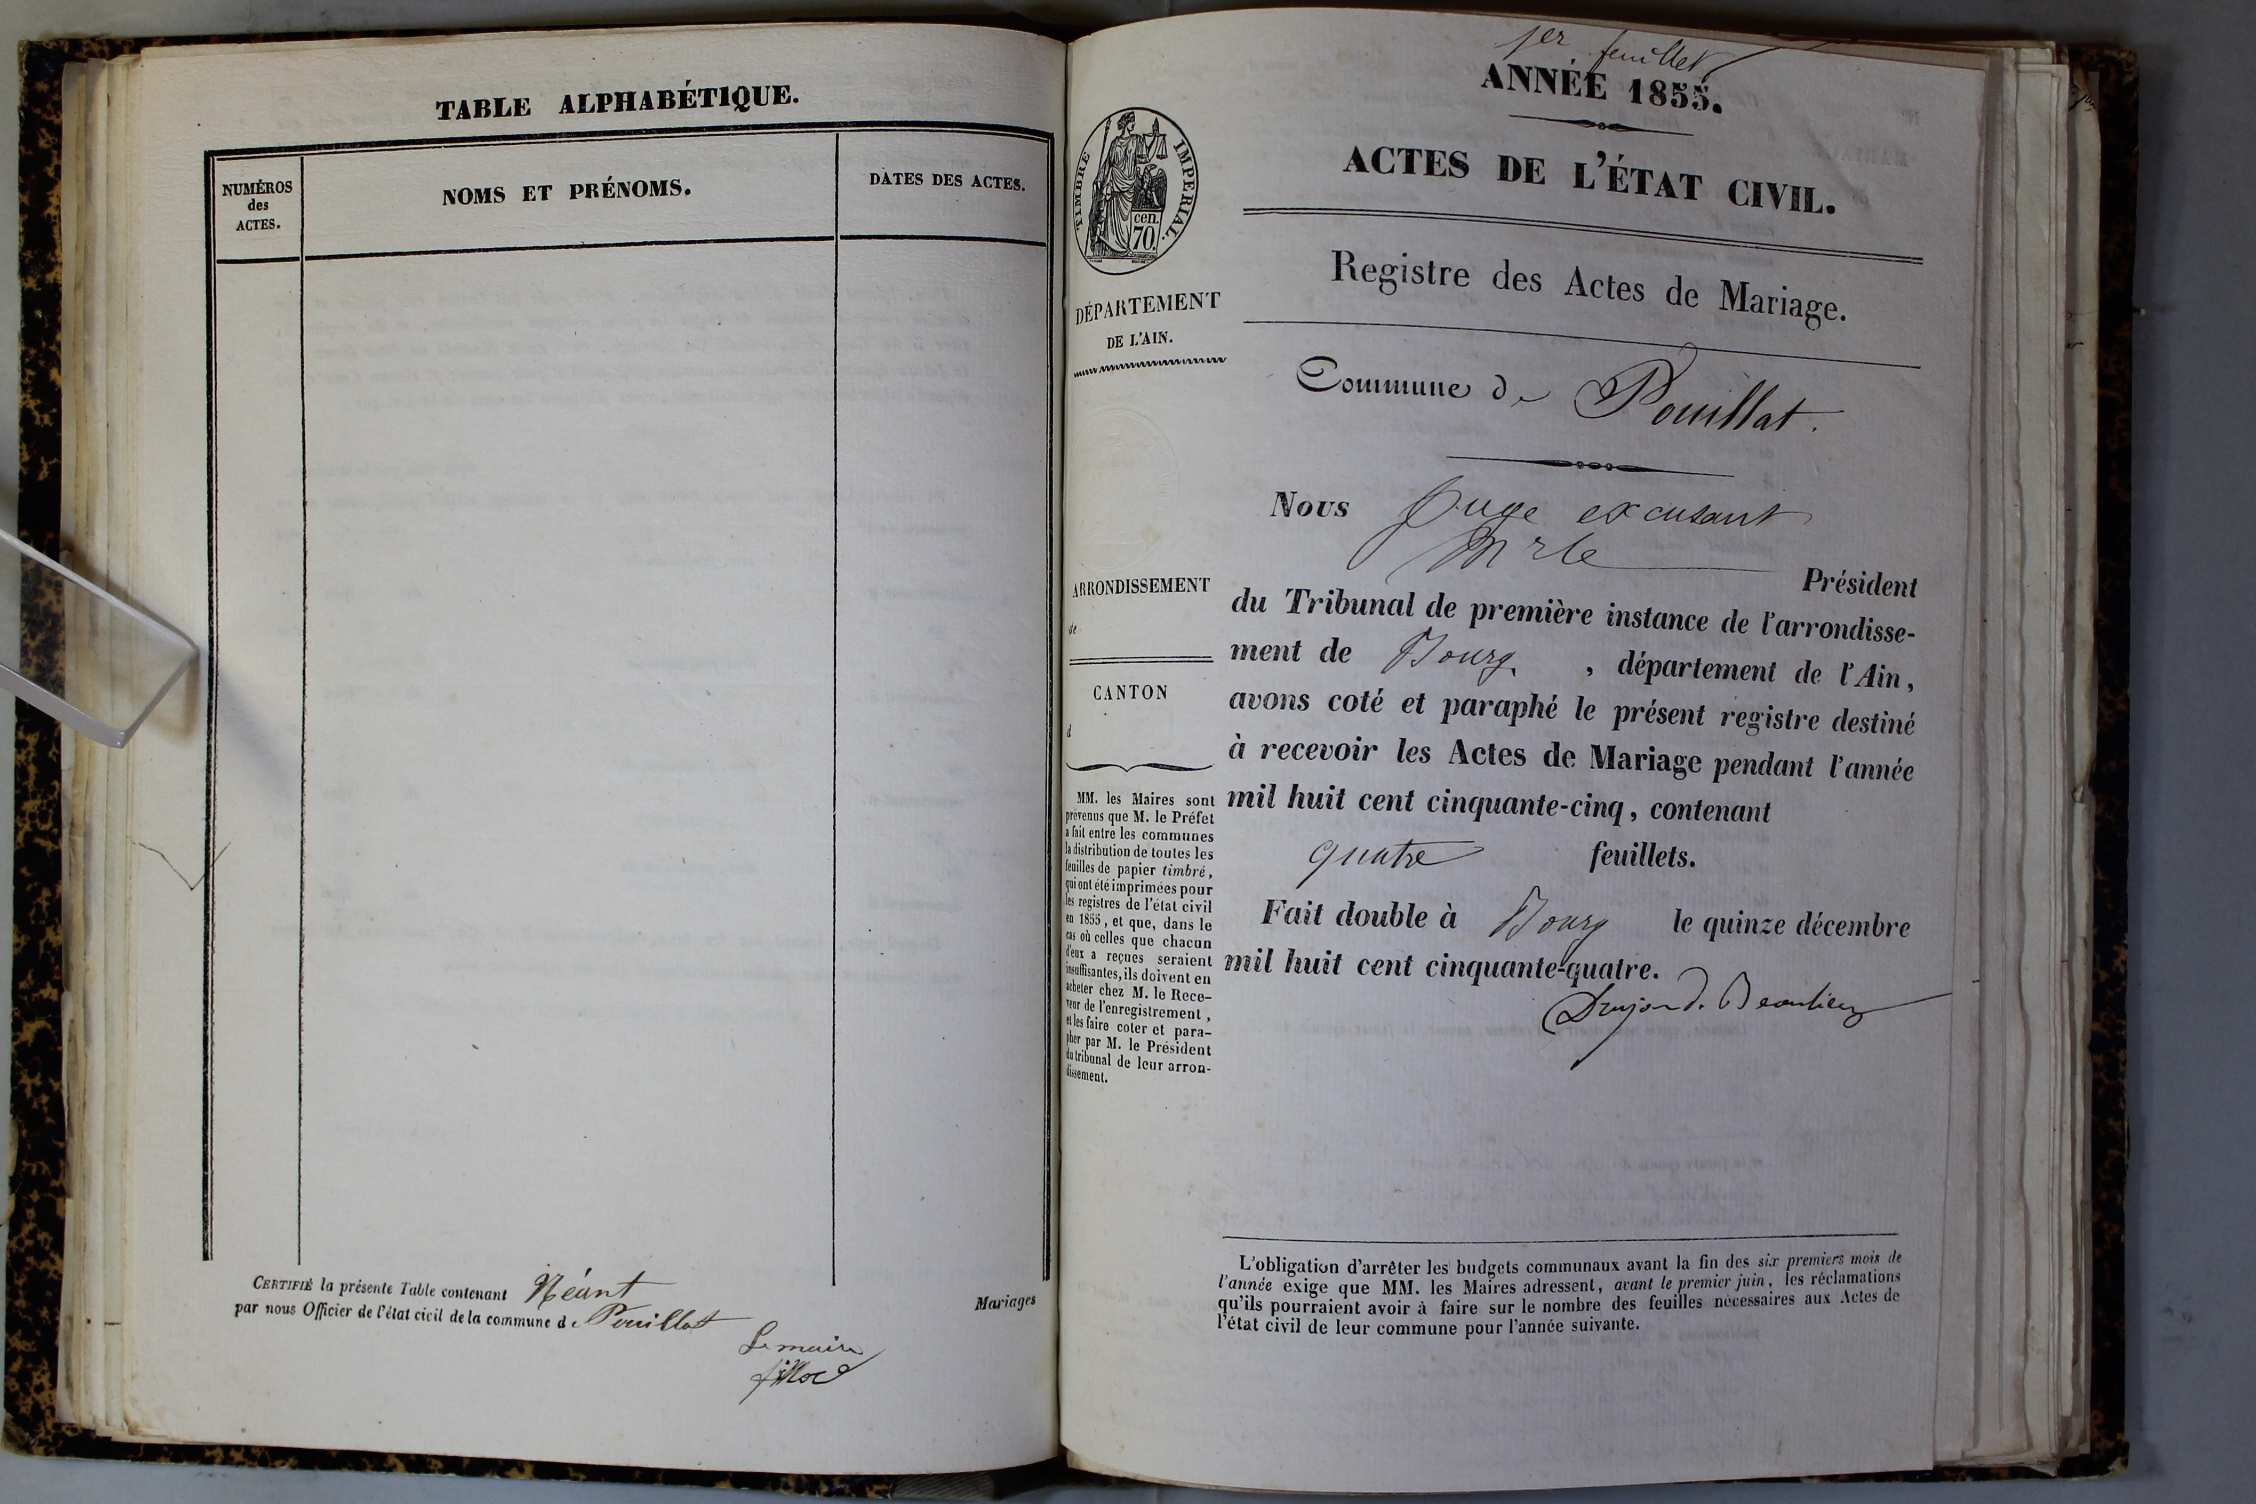 TABLE ALPHABÉTIQUE.
NUMÉROS
des
ACTES.
NOMS ET PRÉNOMS.
DATES DES ACTES.
CERTIFIÉ la présente Table contenant Néant
Mariages
par nous Officier de l'état civil de la commune de Pouillat
Le maire
1er feuillet
ANNÉE 1855.
ACTES DE L'ÉTAT CIVIL.
TIMBRE IMPERIAL.
cen.
70.
DÉPARTEMENT
DE L'AIN.
Registre des Actes de Mariage.
Commune de Pouillat.
ARRONDISSEMENT
de
CANTON
d
MM. les Maires sont
prévenus que M. le Préfet
a fait entre les communes
la distribution de toutes les
feuilles de papier timbré,
qui ont été imprimées pour
les registres de l'état civil
en 1855, et que, dans le
cas où celles que chacun
d'eux a reçues seraient
insuffisantes, ils doivent en
acheter chez M. le Rece-
veur de l'enregistrement,
et les faire coter et para-
pher par M. le Président
du tribunal de leur arron-
dissement.
Nous Juge excusant
Mr le
Président
du Tribunal de première instance de l'arrondisse-
ment de Bourg, département de l'Ain,
avons coté et paraphé le présent registre destiné
à recevoir les Actes de Mariage pendant l'année
mil huit cent cinquante-cinq, contenant
quatre feuillets.
Fait double à Bourg le quinze décembre
mil huit cent cinquante-quatre.
Beaulieu
L'obligation d'arrêter les budgets communaux avant la fin des six premiers mois de
l'année exige que MM. les Maires adressent, avant le premier juin, les réclamations
qu'ils pourraient avoir à faire sur le nombre des feuilles nécessaires aux Actes de
l'état civil de leur commune pour l'année suivante.